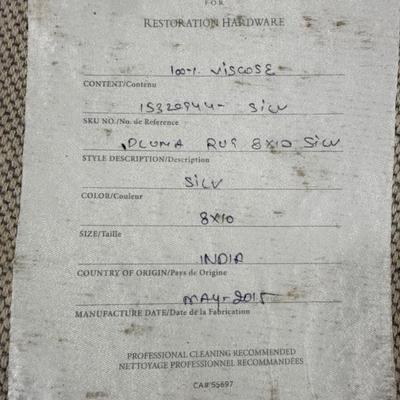 FOR
RESTORATION HARDWARE
100-1. VISCOSE
CONTENT/Contenu
15320944- SILV
SKU NO./No. de Reference
PLUMA RUG 8X10 SILV
STYLE DESCRIPTION/Description
SILV
COLOR/Couleur
8X10
SIZE/Taille
INDIA
COUNTRY OF ORIGIN/Pays de Origine
MAY-2015
MANUFACTURE DATE/Date de la Fabrication
PROFESSIONAL CLEANING RECOMMENDED
NETTOYAGE PROFESSIONNEL RECOMMANDÉES
CA# 55697